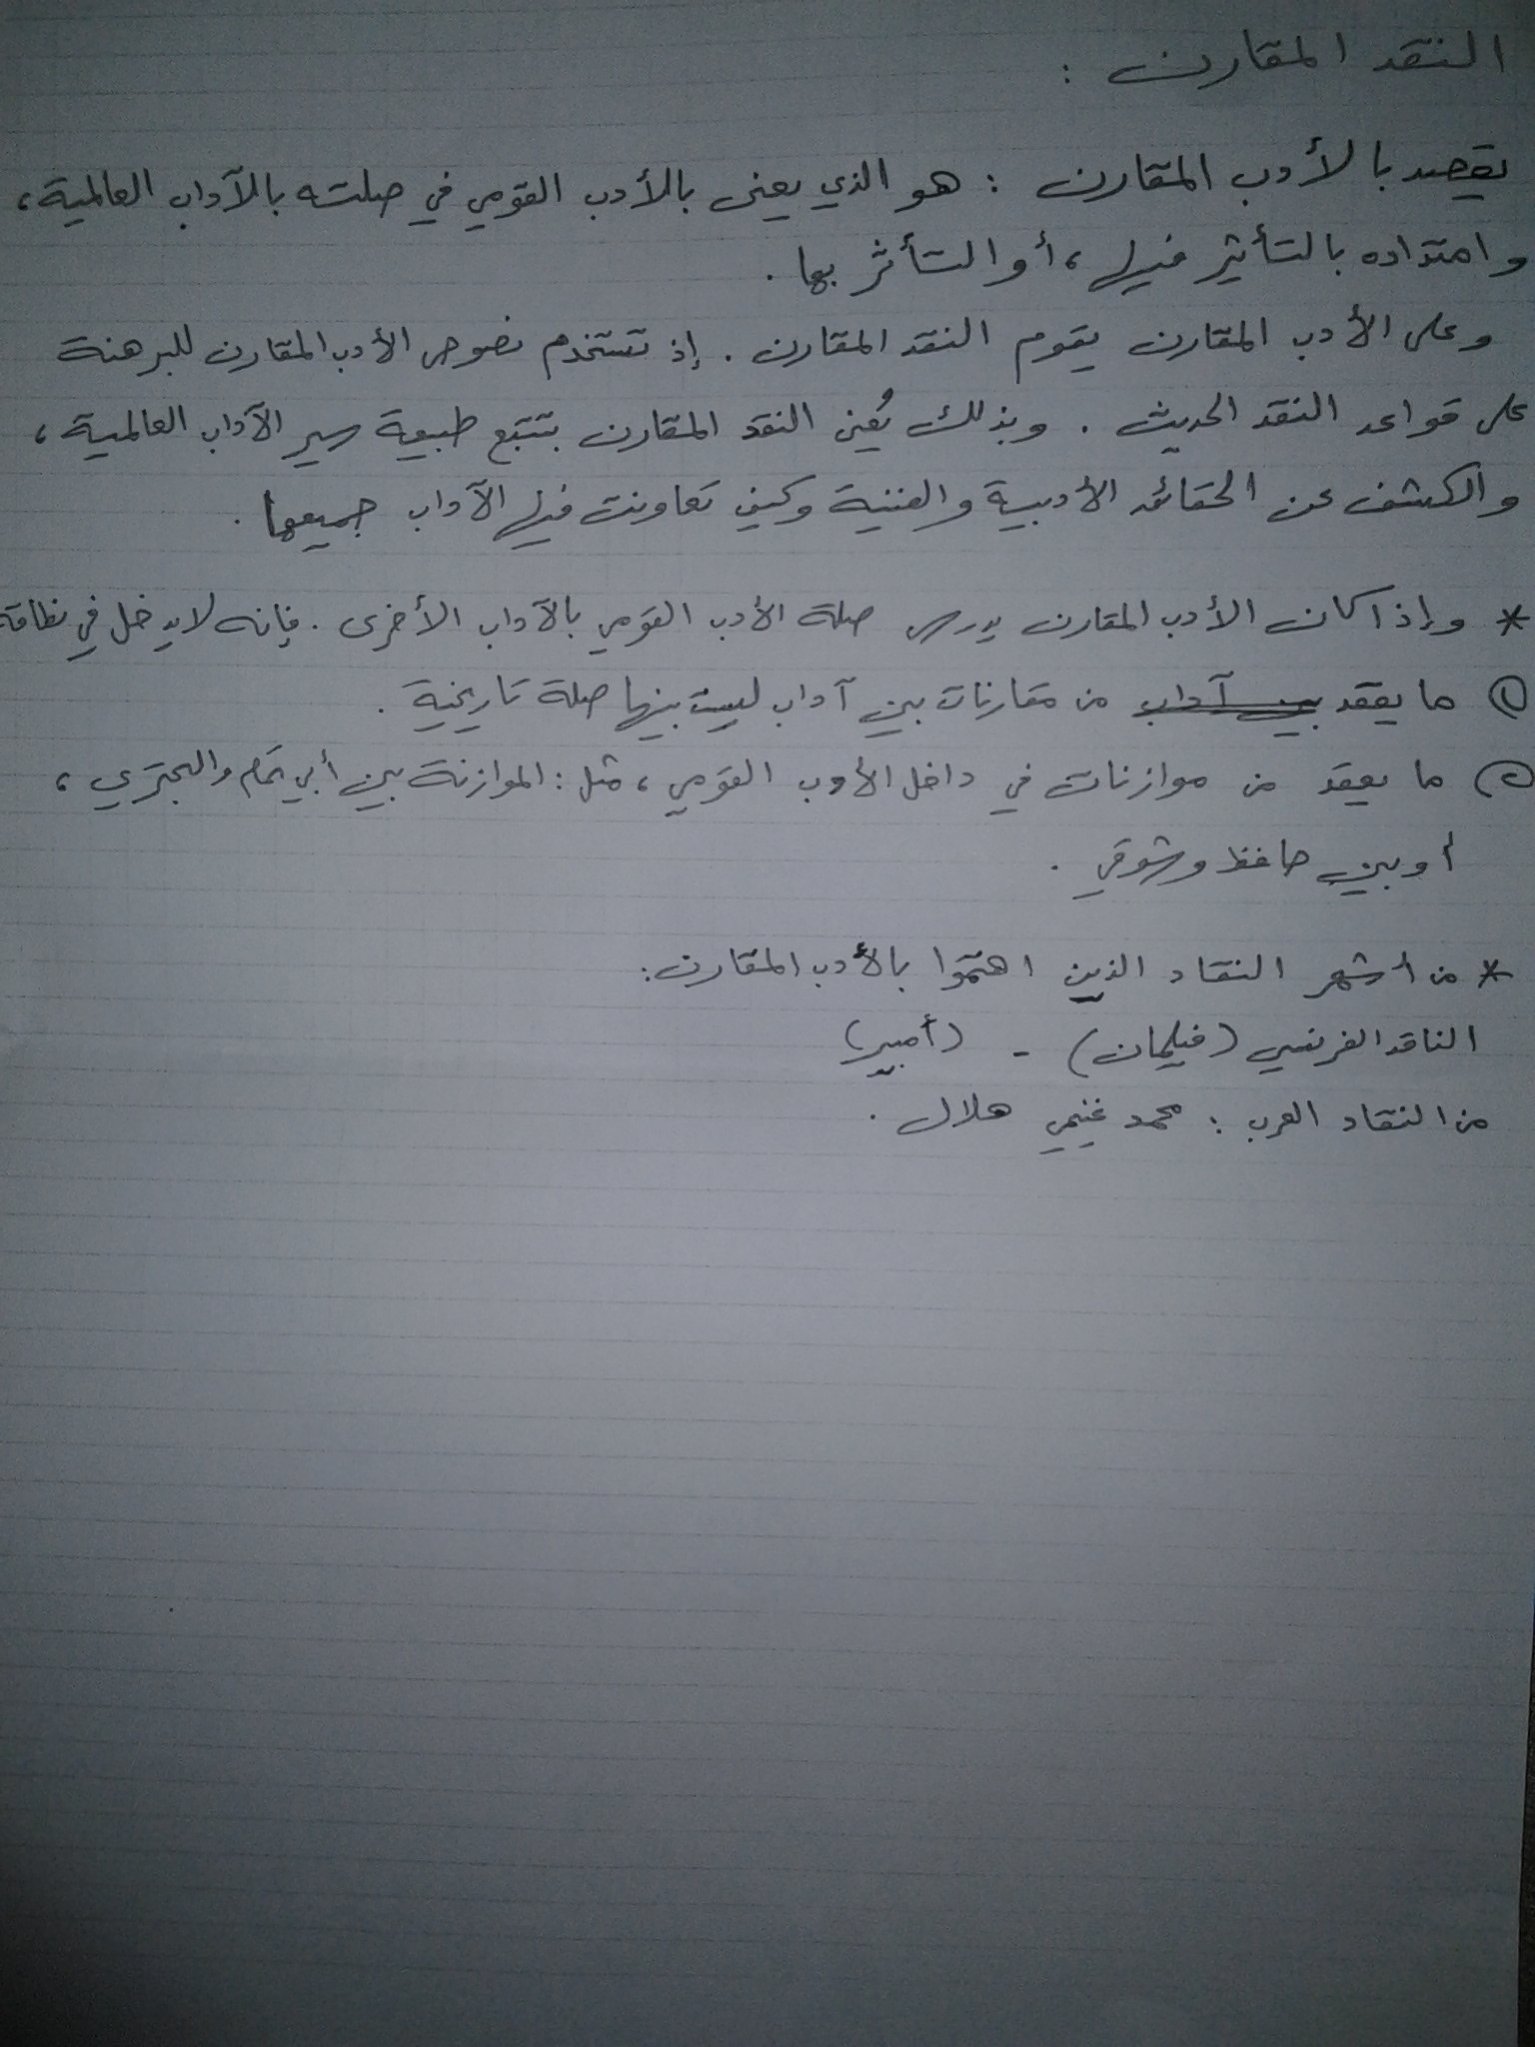 النقد المقارن :
يقصد بالأدب المقارن : هو الذي يعنى بالأدب القومي في صلته بالآداب العالمية ،
وامتداده بالتأثير فيها ، أو التأثر بها .
وعلى الأدب المقارن يقوم النقد المقارن . إذ تستخدم نصوص الأدب المقارن للبرهنة
على قواعد النقد الحديث . وبذلك يُعنى النقد المقارن بتتبع طبيعة سير الآداب العالمية ،
والكشف عن الحقائق الأدبية والفنية وكيف تعاونت فيها الآداب جميعها .
* وإذا كان الأدب المقارن يدرس صلة الأدب القومي بالآداب الأخرى . فإنه لا يدخل في نطاقه
١) ما يعقد بين آداب من مقارنات بين آداب ليست بينها صلة تاريخية .
٢) ما يعقد من موازنات في داخل الأدب القومي ، مثل : الموازنة بين أبي تمام والبحتري ،
أو بين حافظ وشوقي .
* من أشهر النقاد الذين اهتموا بالأدب المقارن :
الناقد الفرنسي (فيلمان) - (أمبير)
من النقاد العرب : محمد غنيمي هلال .